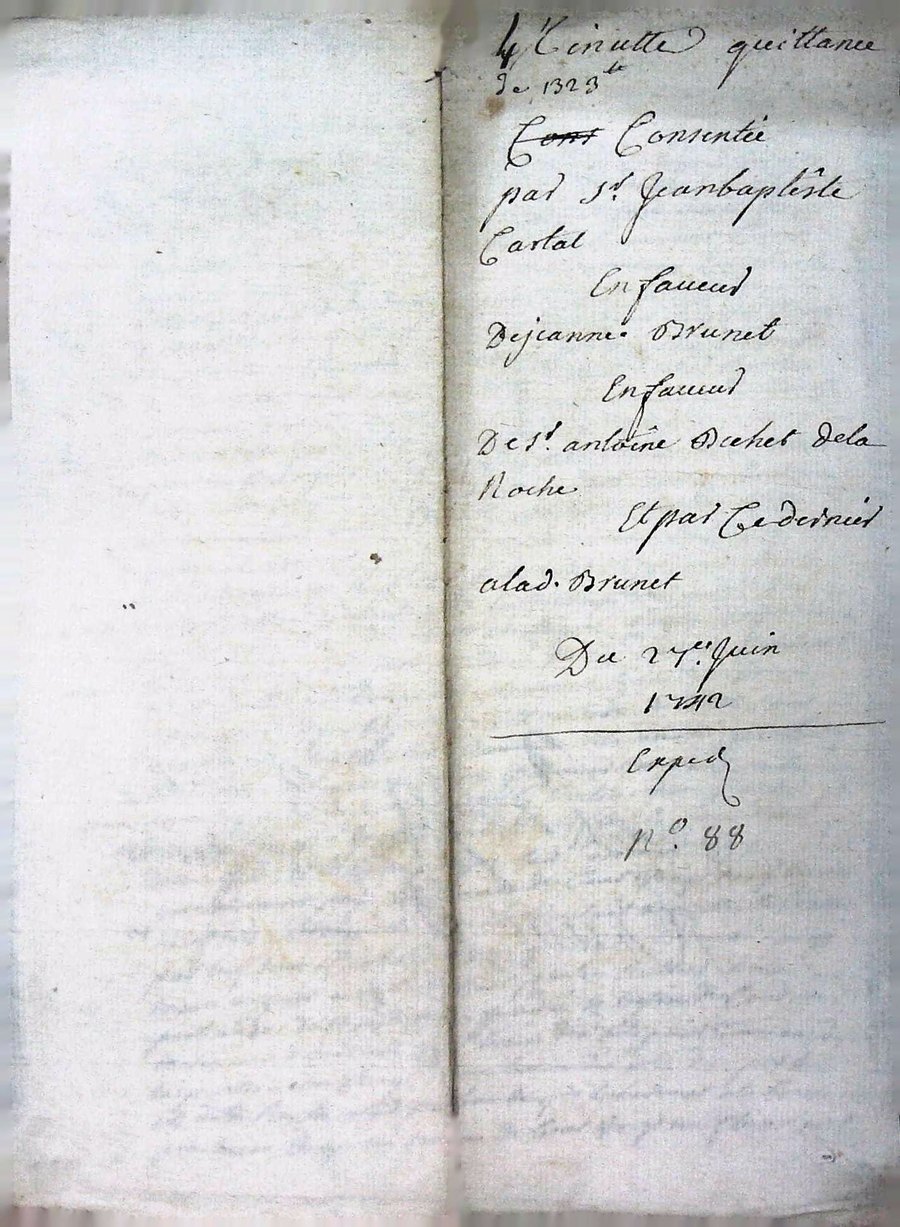 4 Minutte quittance
de 1323ᵗᵗ
Cons Consentie
par Sʳ. Jeanbaptiste
Cartal
En faveur
Dejeanne Brunet
En faveur
De Sʳ. antoine dela
Roche
Et par Ce dernier
alad. Brunet
Du 27ᵉ. Juin
1742
Exped
nº. 88